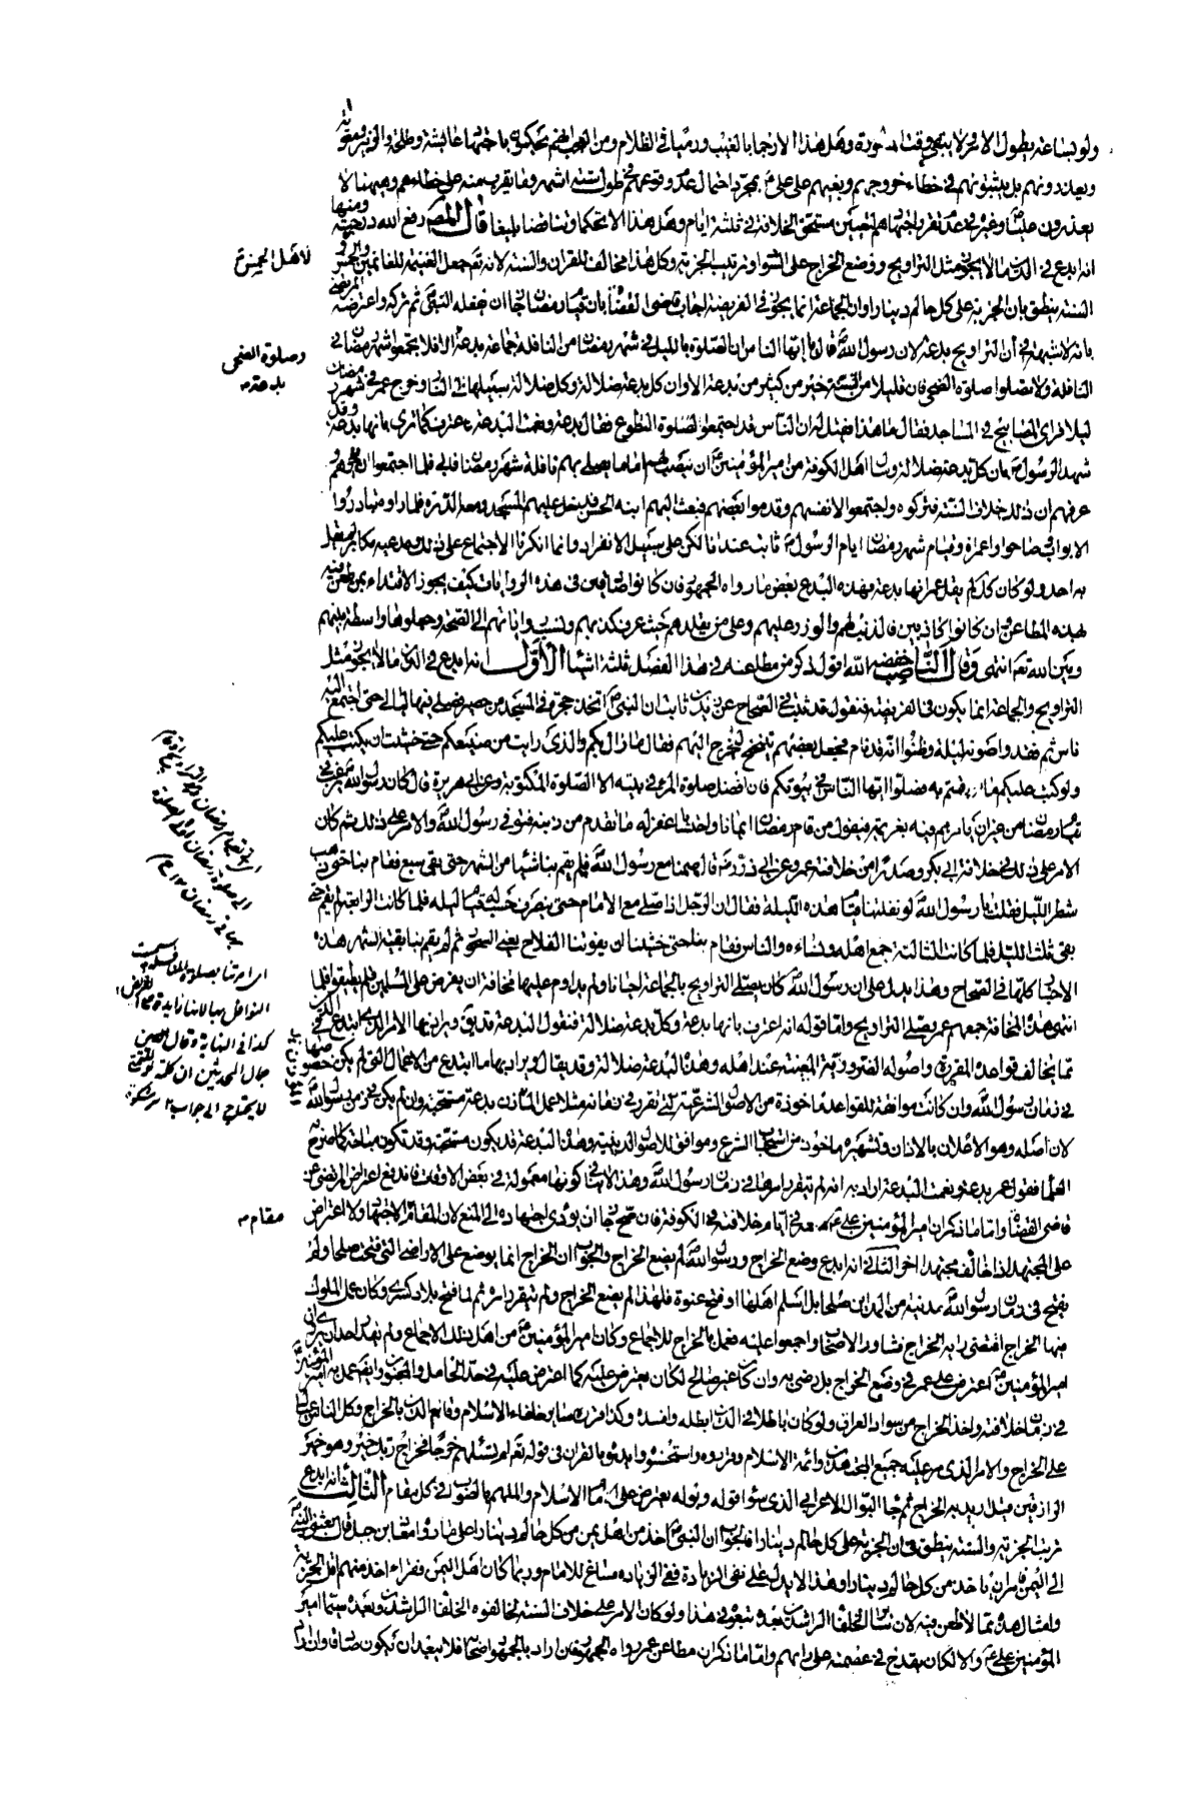 ولو بساعة بطول الامر لا يبقى وقت المشورة وهل هذا الا رجما بالغيب ورميا في الظلام ومن العجب انهم يحكمون باجتهاد عايشة وطلحة والزبير ومعوية
ويعذرونهم بل يثبتونهم في خطاء خروجهم وبغيهم على علي بمجرد احتمال عدم وقوعهم في طول ستة اشهر وما يقرب منه على خطائهم وههنا لا
يعذرون عليا وغيره في عدم تقرر اجتهادهم لتعيين مستحق الخلافة في ثلثة ايام وهل هذا الا تحكما وتناقضا بليغا قال المصنف رفع الله درجته ومنها
انه ابدع في الدين ما لا يجوز مثل التراويح ووضع الخراج على السواد وترتيب الجزية وكل هذا مخالف للقران والسنة لانه تعالى جعل الغنيمة للغانمين والخمس
لاهل الخمس
السنة ينطق بان الجزية على كل حالم دينار وان الجماعة انما يجوز في الفريضة اجاب قاضي القضاة بان قيام رمضان جاز ان فعله النبي ثم تركه واعترضه المرتضى
بانه لا شبهة في ان التراويح بدعة لان رسول الله قال ايها الناس ان الصلوة بالليل في شهر رمضان من النافلة جماعة بدعة الا فلا تجمعوا شهر رمضان في
وصلوة الضحى
بدعة
النافلة ولا تصلوا صلوة الضحى فان قليلا من السنة خير من كثير من بدعة الا وان كل بدعة ضلالة وكل ضلالة سبيلها الى النار وخرج عمر في شهر رمضان
ليلا فراى المصابيح في المساجد فقال ما هذا فقيل له ان الناس قد اجتمعوا لصلوة التطوع فقال بدعة ونعمت البدعة فاعترف كما ترى بانها بدعة وقد
شهد الرسول بان كل بدعة ضلالة وسال اهل الكوفة من امير المؤمنين ان ينصب لهم اماما يصلي بهم نافلة شهر رمضان فابى فلما اجتمعوا
عرفهم ان ذلك خلاف السنة فتركوه واجتمعوا لانفسهم وقدموا بعضهم فبعث اليهم ابنه الحسن فدخل عليهم المسجد ومعه الدرة فلما راوه تبادروا
الابواب وصاحوا واعمراه وقيام شهر رمضان ايام الرسول ثابت عندنا لكن على سبيل الانفراد وانما انكرنا الاجتماع على ذلك ومدعيه مكابر لم يقل
به احد ولو كان كذلك لم يقل عمر انها بدعة فهذه البدع بعض ما رواه الجمهور فان كانوا صادقين في هذه الروايات كيف يجوز الاقتداء بمن طعن فيه
بهذه المطاعن وان كانوا كاذبين فالذنب لهم والوزر عليهم وعلى من يقلدهم حيث عرف كذبهم ونسب رواياتهم الى الصحة وجعلوها واسطة بينهم
وبين الله تعالى انتهى وقال الناصب خفضه الله اقول ذكر من مطاعنه في هذا الفصل ثلثة اشياء الاول انه ابدع في الدين ما لا يجوز مثل
التراويح والجماعة انما يكون في الفريضة فنقول قد ثبت في الصحاح عن زيد بن ثابت ان النبي اتخذ حجرة في المسجد من حصير فصلى فيها ليالي حتى اجتمع اليه
ناس ثم فقدوا صوته ليلة وظنوا انه قد نام فجعل بعضهم يتنحنح ليخرج اليهم فقال ما زال بكم والذي رايت من صنيعكم حتى خشيت ان يكتب عليكم
ولو كتب عليكم ما قمتم به فصلوا ايها الناس في بيوتكم فان افضل صلوة المرء في بيته الا الصلوة المكتوبة وعن ابي هريرة قال كان رسول الله يرغب في
قيام رمضان من غير ان يامرهم فيه بعزيمة فيقول من قام رمضان ايمانا واحتسابا غفر له ما تقدم من ذنبه فتوفي رسول الله والامر على ذلك ثم كان
الامر على ذلك في خلافة ابي بكر وصدرا من خلافة عمر وعن ابي ذر قال صمنا مع رسول الله فلم يقم بنا شيئا من الشهر حتى بقي سبع فقام بنا حتى ذهب
شطر الليل فقلت يا رسول الله لو نفلتنا قيام هذه الليلة فقال ان الرجل اذا صلى مع الامام حتى ينصرف حسب له قيام ليلة فلما كانت الرابعة لم يقم حتى
بقي ثلث الليل فلما كانت الثالثة جمع اهله ونساءه والناس فقام بنا حتى خشينا ان يفوتنا الفلاح يعني السحور ثم لم يقم بنا بقية الشهر هذه
الاخبار كلها في الصحاح وهذا يدل على ان رسول الله كان يصلي التراويح بالجماعة احيانا ولم يداوم عليها مخافة ان يفرض على المسلمين فلم يطيقوا فلما
انتهى هذه المخافة جمعهم عمر وصلى التراويح واما قوله انه اعترف بانها بدعة وكل بدعة ضلالة فنقول البدعة قد يقال ويراد بها الامر الذي ابتدع في الدين
مما يخالف قواعده المقررة واصوله المبينة عند اهله وهذه البدعة ضلالة وقد يقال ويراد بها ما ابتدع من الاعمال التي لم يكن
في زمان رسول الله وان كانت موافقة للقواعد ماخوذة من الاصول الشرعية لكن تقرر في زمانه مثلا عمل المنارة بدعة مستحبة وان لم يكن في زمن رسول الله
لان اصله وهو الاعلان بالاذان وتشهيره ماخوذ من اشياء الشرع وموافق للاصول الدينية وهذه البدعة قد يكون مستحبة وقد تكون مباحة كما صرح به
العلماء فقول عمر بدعة ونعمت البدعة اراد به انه لم يتقرر امرها في زمان رسول الله وهذا لا ينافي كونها معمولة في بعض الاوقات فاندفع اعتراض المرتضى عن
قاضي القضاة واما ما ذكر ان امير المؤمنين علي منعه في ايام خلافته في الكوفة فان صح جاز ان يؤدي اجتهاده الى المنع لان المقام مقام الاجتهاد ولا اعتراض
مقام
على المجتهد اذا خالف مجتهدا اخر الثاني انه ابدع وضع الخراج ورسول الله لم يضع الخراج والجواب ان الخراج انما يوضع على الاراضي التي فتحت صلحا ولم
يفتح في زمان رسول الله مدينة من المداين صلحا بل اسلم اهلها او فتح عنوة فلهذا لم يضع الخراج ولم يتقرر امره ثم لما فتح بلاد كسرى وكان عمل الملوك
فيها الخراج اقتضى رايه الخراج فشاور الاصحاب واجمعوا عليه فعمل بالخراج للاجماع وكان امير المؤمنين من اهل ذلك الاجماع ولم يقل احد ان
امير المؤمنين اعترض على عمر في وضع الخراج بل رضي به وان كان غير صالح لكان يعترض عليه كما اعترض عليه في حد الحامل والمجنون وايضا عمل به امير المؤمنين
في زمان خلافته واخذ الخراج من سواد العراق ولو كان باطلا في الدين ابطله وافسده وكذا قرره ساير خلفاء الاسلام وقايع الدين بالخراج وكل الناس
على الخراج والامر الذي مر عليه جميع المجتهدين وائمة الاسلام وقرروه واستحسنوه وايدوه بالقران في قوله تعالى ام تسئلهم خرجا فخراج ربك خير وهو خير
الرازقين قيل يريد به الخراج ثم جاء البوال الاعرابي الذي سواء قوله وبوله يعترض على ائمة الاسلام والملهم بالصواب في كل مقام الثالث انه ابدع
ترتيب الجزية والسنة ينطق بان الجزية على كل حالم دينار والجواب ان النبي اخذ من اهل يمن من كل حالم دينارا على ما روا معاذ بن جبل قال بعثني النبي
الى اليمن وامرني ان ياخذ من كل حالم دينارا وهذا لا يدل على نفي الزيادة ففي الزيادة مساغ للامام وربما كان اهل اليمن وفقراء اخذ منهم اقل الجزية
وامثال هذه مما لا طعن فيه لان ساير الخلفاء الراشدين بعده تبعوه في هذا ولو كان الامر على خلاف السنة لخالفوه الخلفاء الراشدين وبعده سيما امير
المؤمنين علي والا لكان يقدح في عصمته على رايهم واما ما ذكر ان مطاعن عمر رواه الجمهور فان اراد بالجمهور اصحابنا فلا يبعد ان يكون صادقا وان اراد